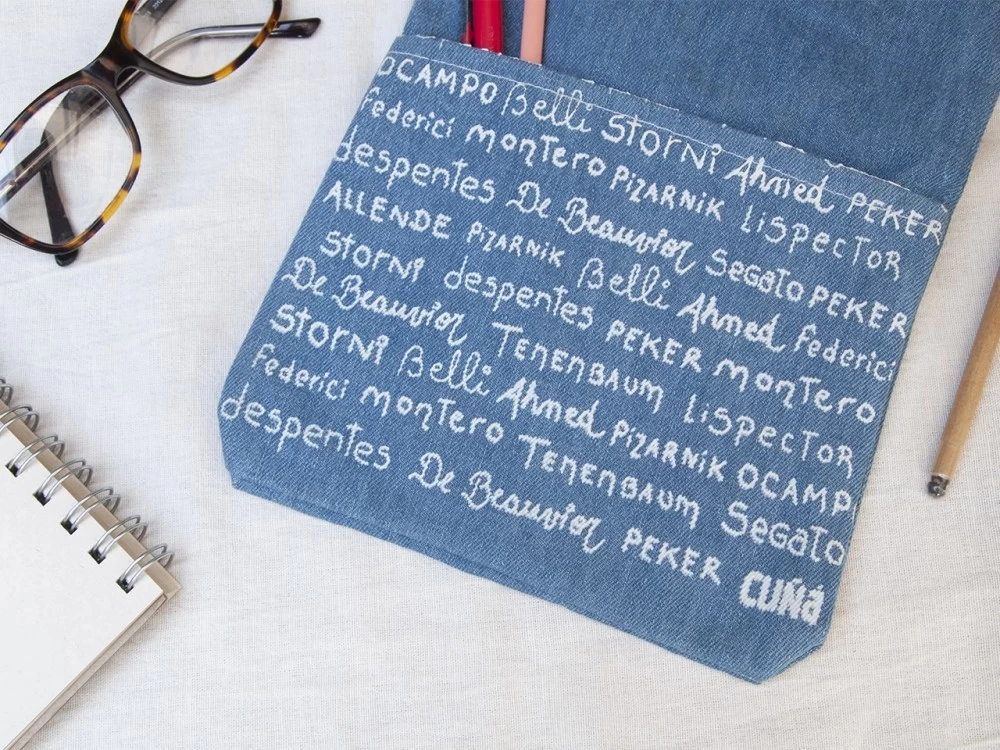 OCAMPO Belli STORNI Ahmed PEKER
Federici montero PIZARNIK LISPECTOR
despentes De Beauvoir Segato PEKER
ALLENDE PIZARNIK Belli Ahmed Federici
STORNI despentes PEKER montero
De Beauvoir Tenenbaum LISPECTOR
STORNI Belli Ahmed PIZARNIK OCAMPO
Federici montero Tenenbaum Segato
despentes De Beauvoir PEKER CUÑa